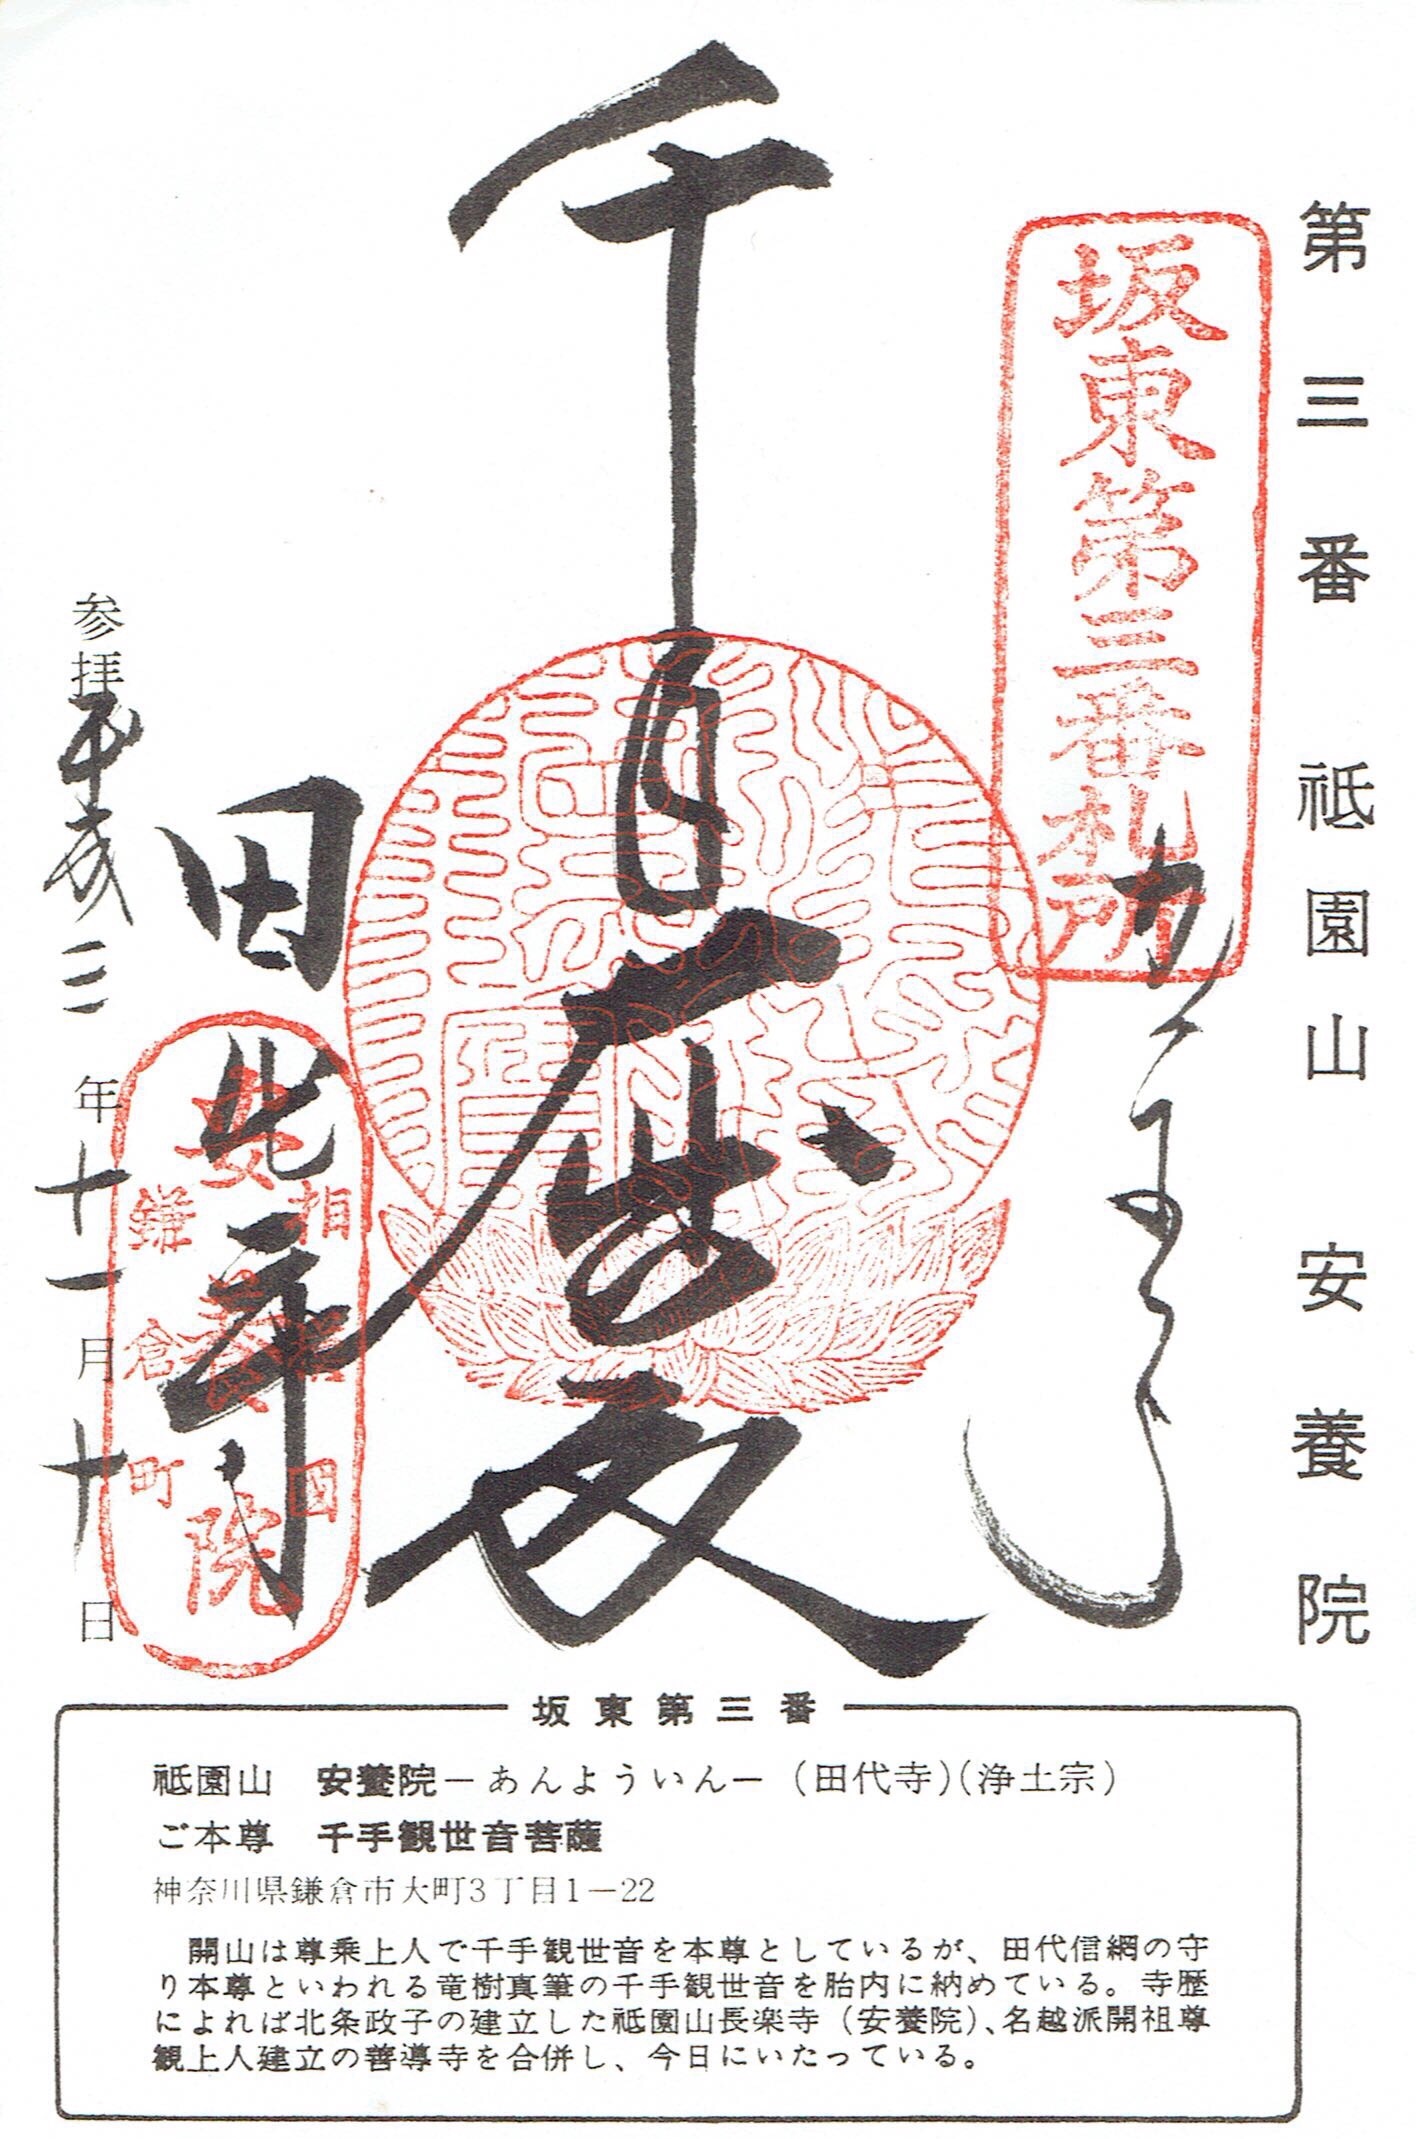 第三番 祇園山 安養院
坂東第三番札所
千
田代寺
相模国
安養院
鎌倉町
参拝平成
年十一月十日
坂東第三番
祇園山 安養院－あんよういん－（田代寺）（浄土宗）
ご本尊 千手観世音菩薩
神奈川県鎌倉市大町3丁目1－22
開山は尊乗上人で千手観世音を本尊としているが、田代信綱の守
り本尊といわれる竜樹真筆の千手観世音を胎内に納めている。寺歴
によれば北条政子の建立した祇園山長楽寺（安養院）、名越派開祖尊
観上人建立の善導寺を合併し、今日にいたっている。